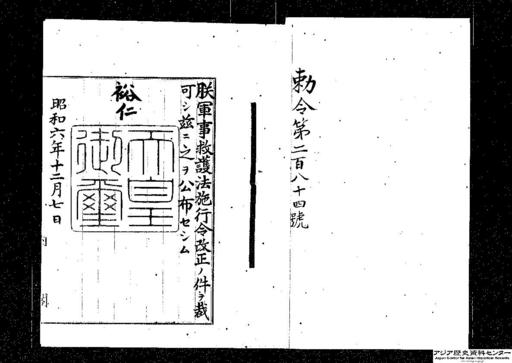 勅令第二百八十四號
朕軍事救護法施行令改正ノ件ヲ裁
可シ茲ニ之ヲ公布セシム
裕仁
天皇
御璽
昭和六年十二月七日
内閣
アジア歴史資料センター
Japan Center for Asian Historical Records